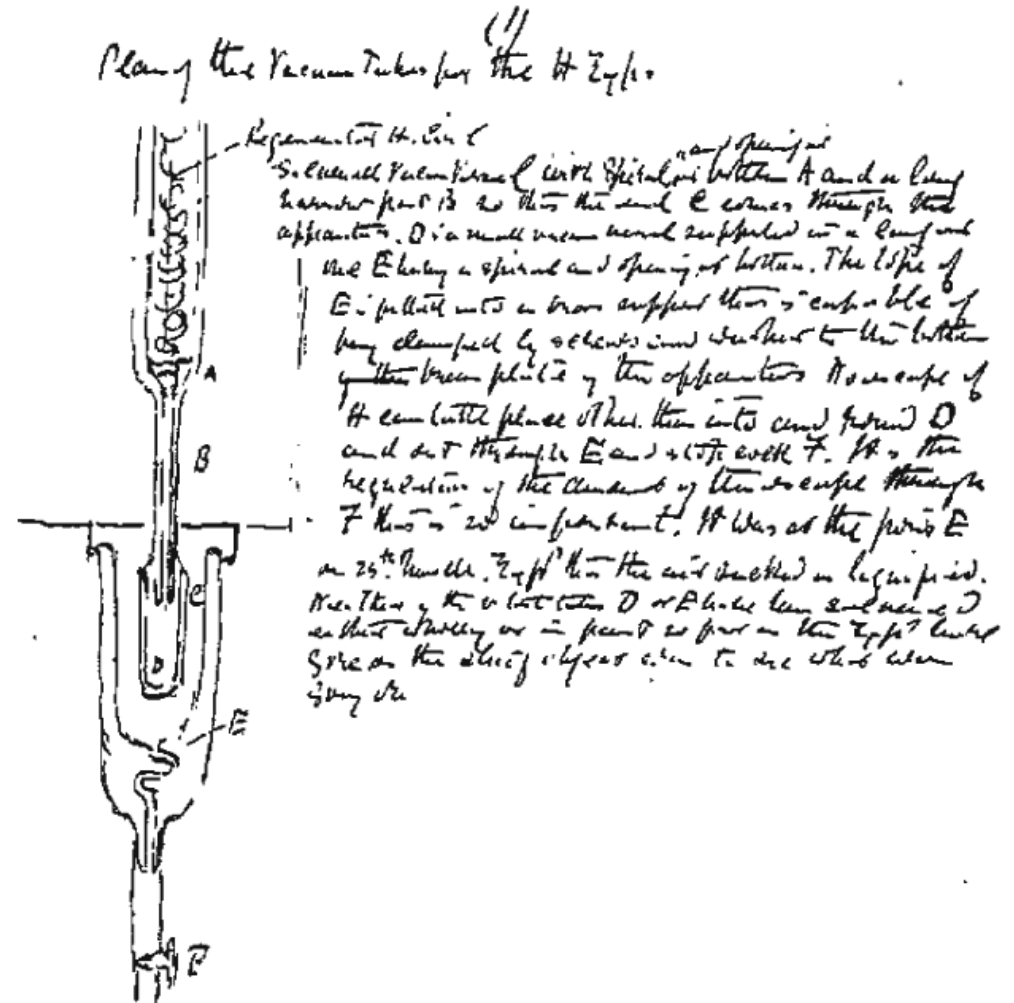 (1)
Plan of the Vacuum Tubes for the H Exp.
Regenerator H. Coil
Silvered Vacuum Vessel with Spiral at bottom A and a long
and opening at
narrow part B so that the end C comes through the
apparatus. D is a small vacuum vessel supported in a large
one E having a spiral and opening at bottom. The top of
E is fitted into a brass support that is capable of
being clamped by screws and washer to the bottom
of the brass plate of the apparatus No escape of
H can take place other than into and round D
and out through E and stop cock F. It is the
regulation of the amount of this escape through
F that is so important. It was at the point E
on 25th March Exp that the air sucked in
Neither of the tubes D or E have been silvered
either wholly or in part so far as the Exp have
gone as the chief object was to see what was
going on
A
B
C
D
E
F